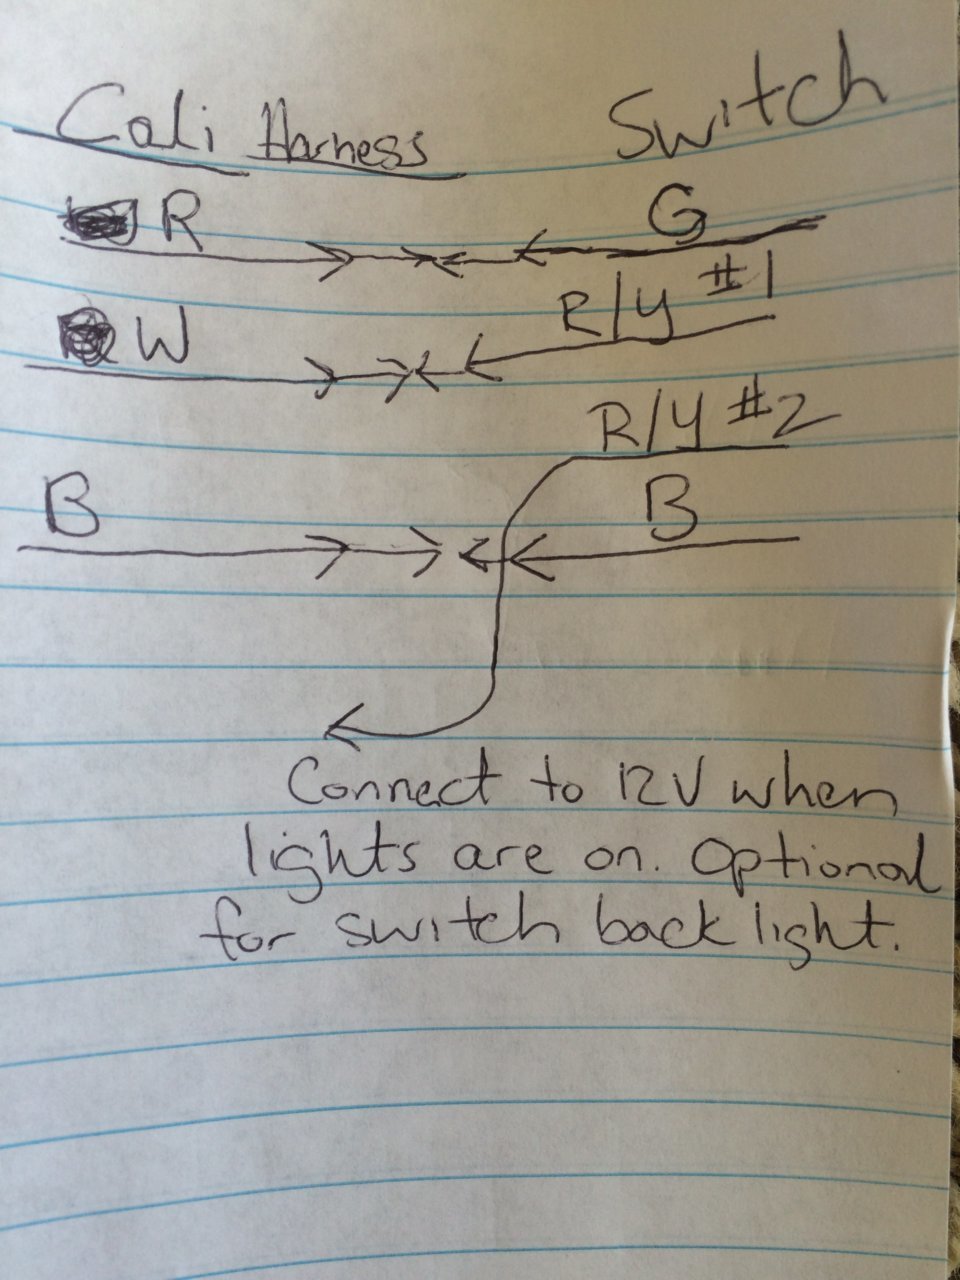 Cali Harness Switch
R G
W R/Y #1
R/Y #2
B B
Connect to 12V when
lights are on. Optional
for switch back light.